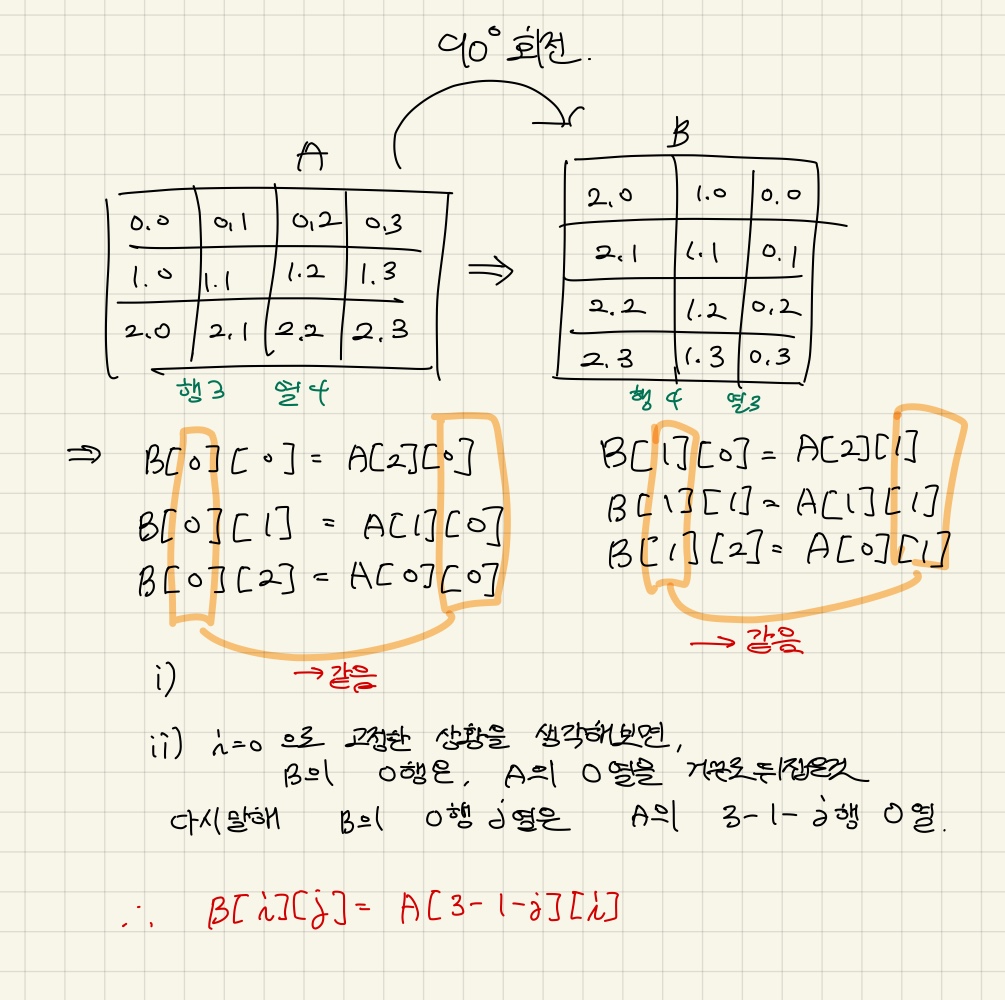 90° 회전.
A
0.0 0,1 0,2 0,3
1.0 1.1 1.2 1.3
2.0 2,1 2,2 2.3
행3 열4
B
2.0 1.0 0.0
2.1 1.1 0.1
2.2 1.2 0.2
2.3 1.3 0.3
행 4 열3
⇒ B[0][0] = A[2][0]
B[0][1] = A[1][0]
B[0][2] = A[0][0]
→ 같음
B[1][0] = A[2][1]
B[1][1] = A[1][1]
B[1][2] = A[0][1]
→ 같음
i)
ii) i=0 으로 고정한 상황을 생각해보면,
B의 0행은, A의 0열을 거꾸로 뒤집은것
다시말해 B의 0행 j열은 A의 3-1-j행 0열.
∴ B[i][j] = A[3-1-j][i]